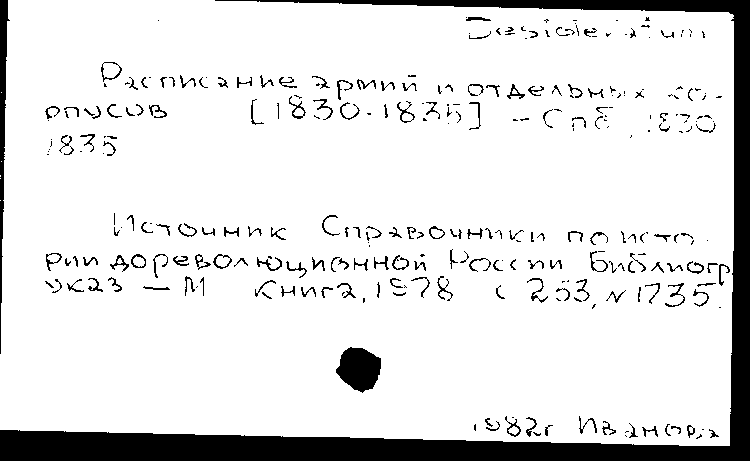 Desideratum
Расписание армий и отдельных кор-
пусов [1830-1835] - Спб, 1830
1835
Источник Справочники по исто
рии дореволюционной России Библиогр
указ — М Книга, 1978 с 253, N 1735.
1982г Иванова